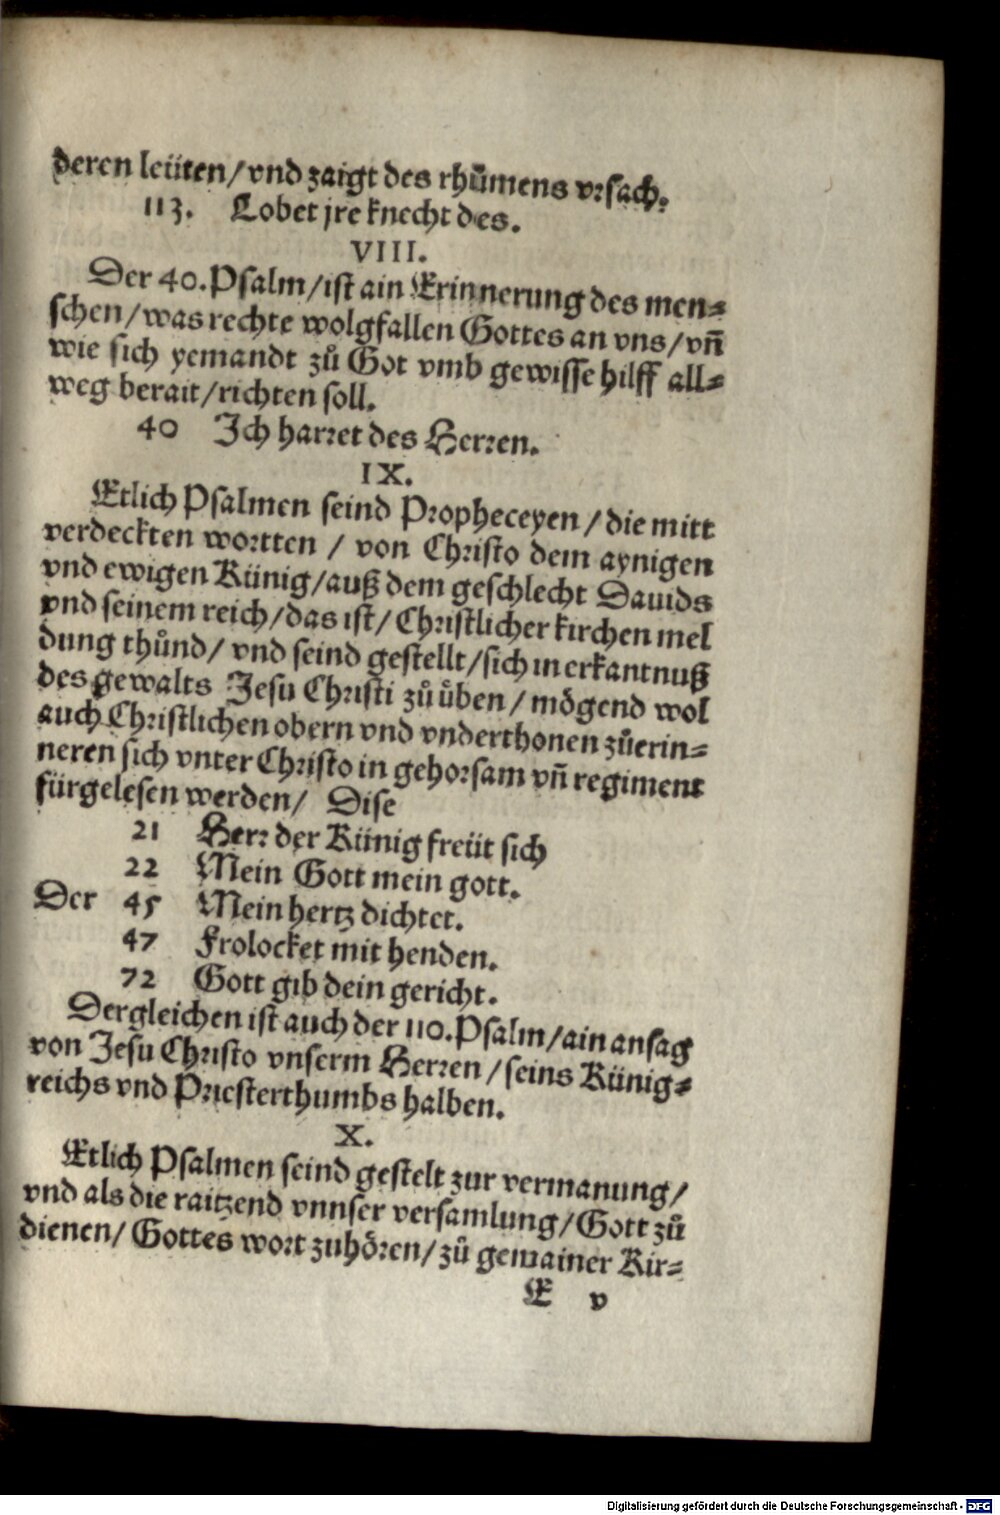 deren leüten/vnd zaigt des rhůmens vrsach.
113. Lobet jre knecht des.
VIII.
Der 40. Psalm/ist ain Erinnerung des men⸗
schen/was rechte wolgfallen Gottes an vns/vñ
wie sich yemandt zů Got vmb gewisse hilff all⸗
weg berait/richten soll.
40 Ich harret des Herren.
IX.
Etlich Psalmen seind Propheceyen/die mitt
verdeckten wortten / von Christo dem aynigen
vnd ewigen Künig/auß dem geschlecht Dauids
vnd seinem reich/das ist/Christlicher kirchen mel
dung thůnd/ vnd seind gestellt/sich in erkantnuß
des gewalts Jesu Christi zů ůben/mögend wol
auch Christlichen obern vnd vnderthonen zůerin⸗
neren sich vnter Christo in gehorsam vñ regiment
fürgelesen werden/ Dise
21 Herr der Künig freüt sich
22 Mein Gott mein gott.
Der 45 Mein hertz dichtet.
47 Frolocket mit henden.
72 Gott gib dein gericht.
Dergleichen ist auch der 110. Psalm/ain ansag
von Jesu Christo vnserm Herren/seins Künig⸗
reichs vnd Priesterthumbs halben.
X.
Etlich Psalmen seind gestelt zur vermanung/
vnd als die raitzend vnnser versamlung/Gott zů
dienen/Gottes wort zuhören/zů gemainer Kir⸗
E v
Digitalisierung gefördert durch die Deutsche Forschungsgemeinschaft - DFG